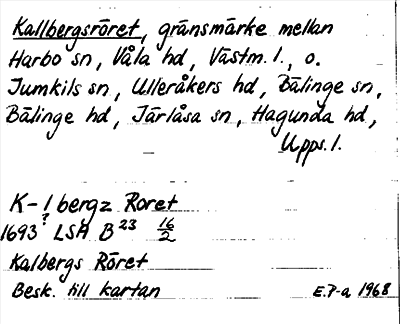 Kallbergsröret, gränsmärke mellan
Harbo sn, Våla hd, Västm. l., o.
Jumkils sn, Ulleråkers hd, Bälinge sn,
Bälinge hd, Järlåsa sn, Hagunda hd,
Upps. l.
K-lbergz Roret
?
1693 LSA B23 16/2
Kalbergs Röret
Besk. till kartan E.P-a 1968